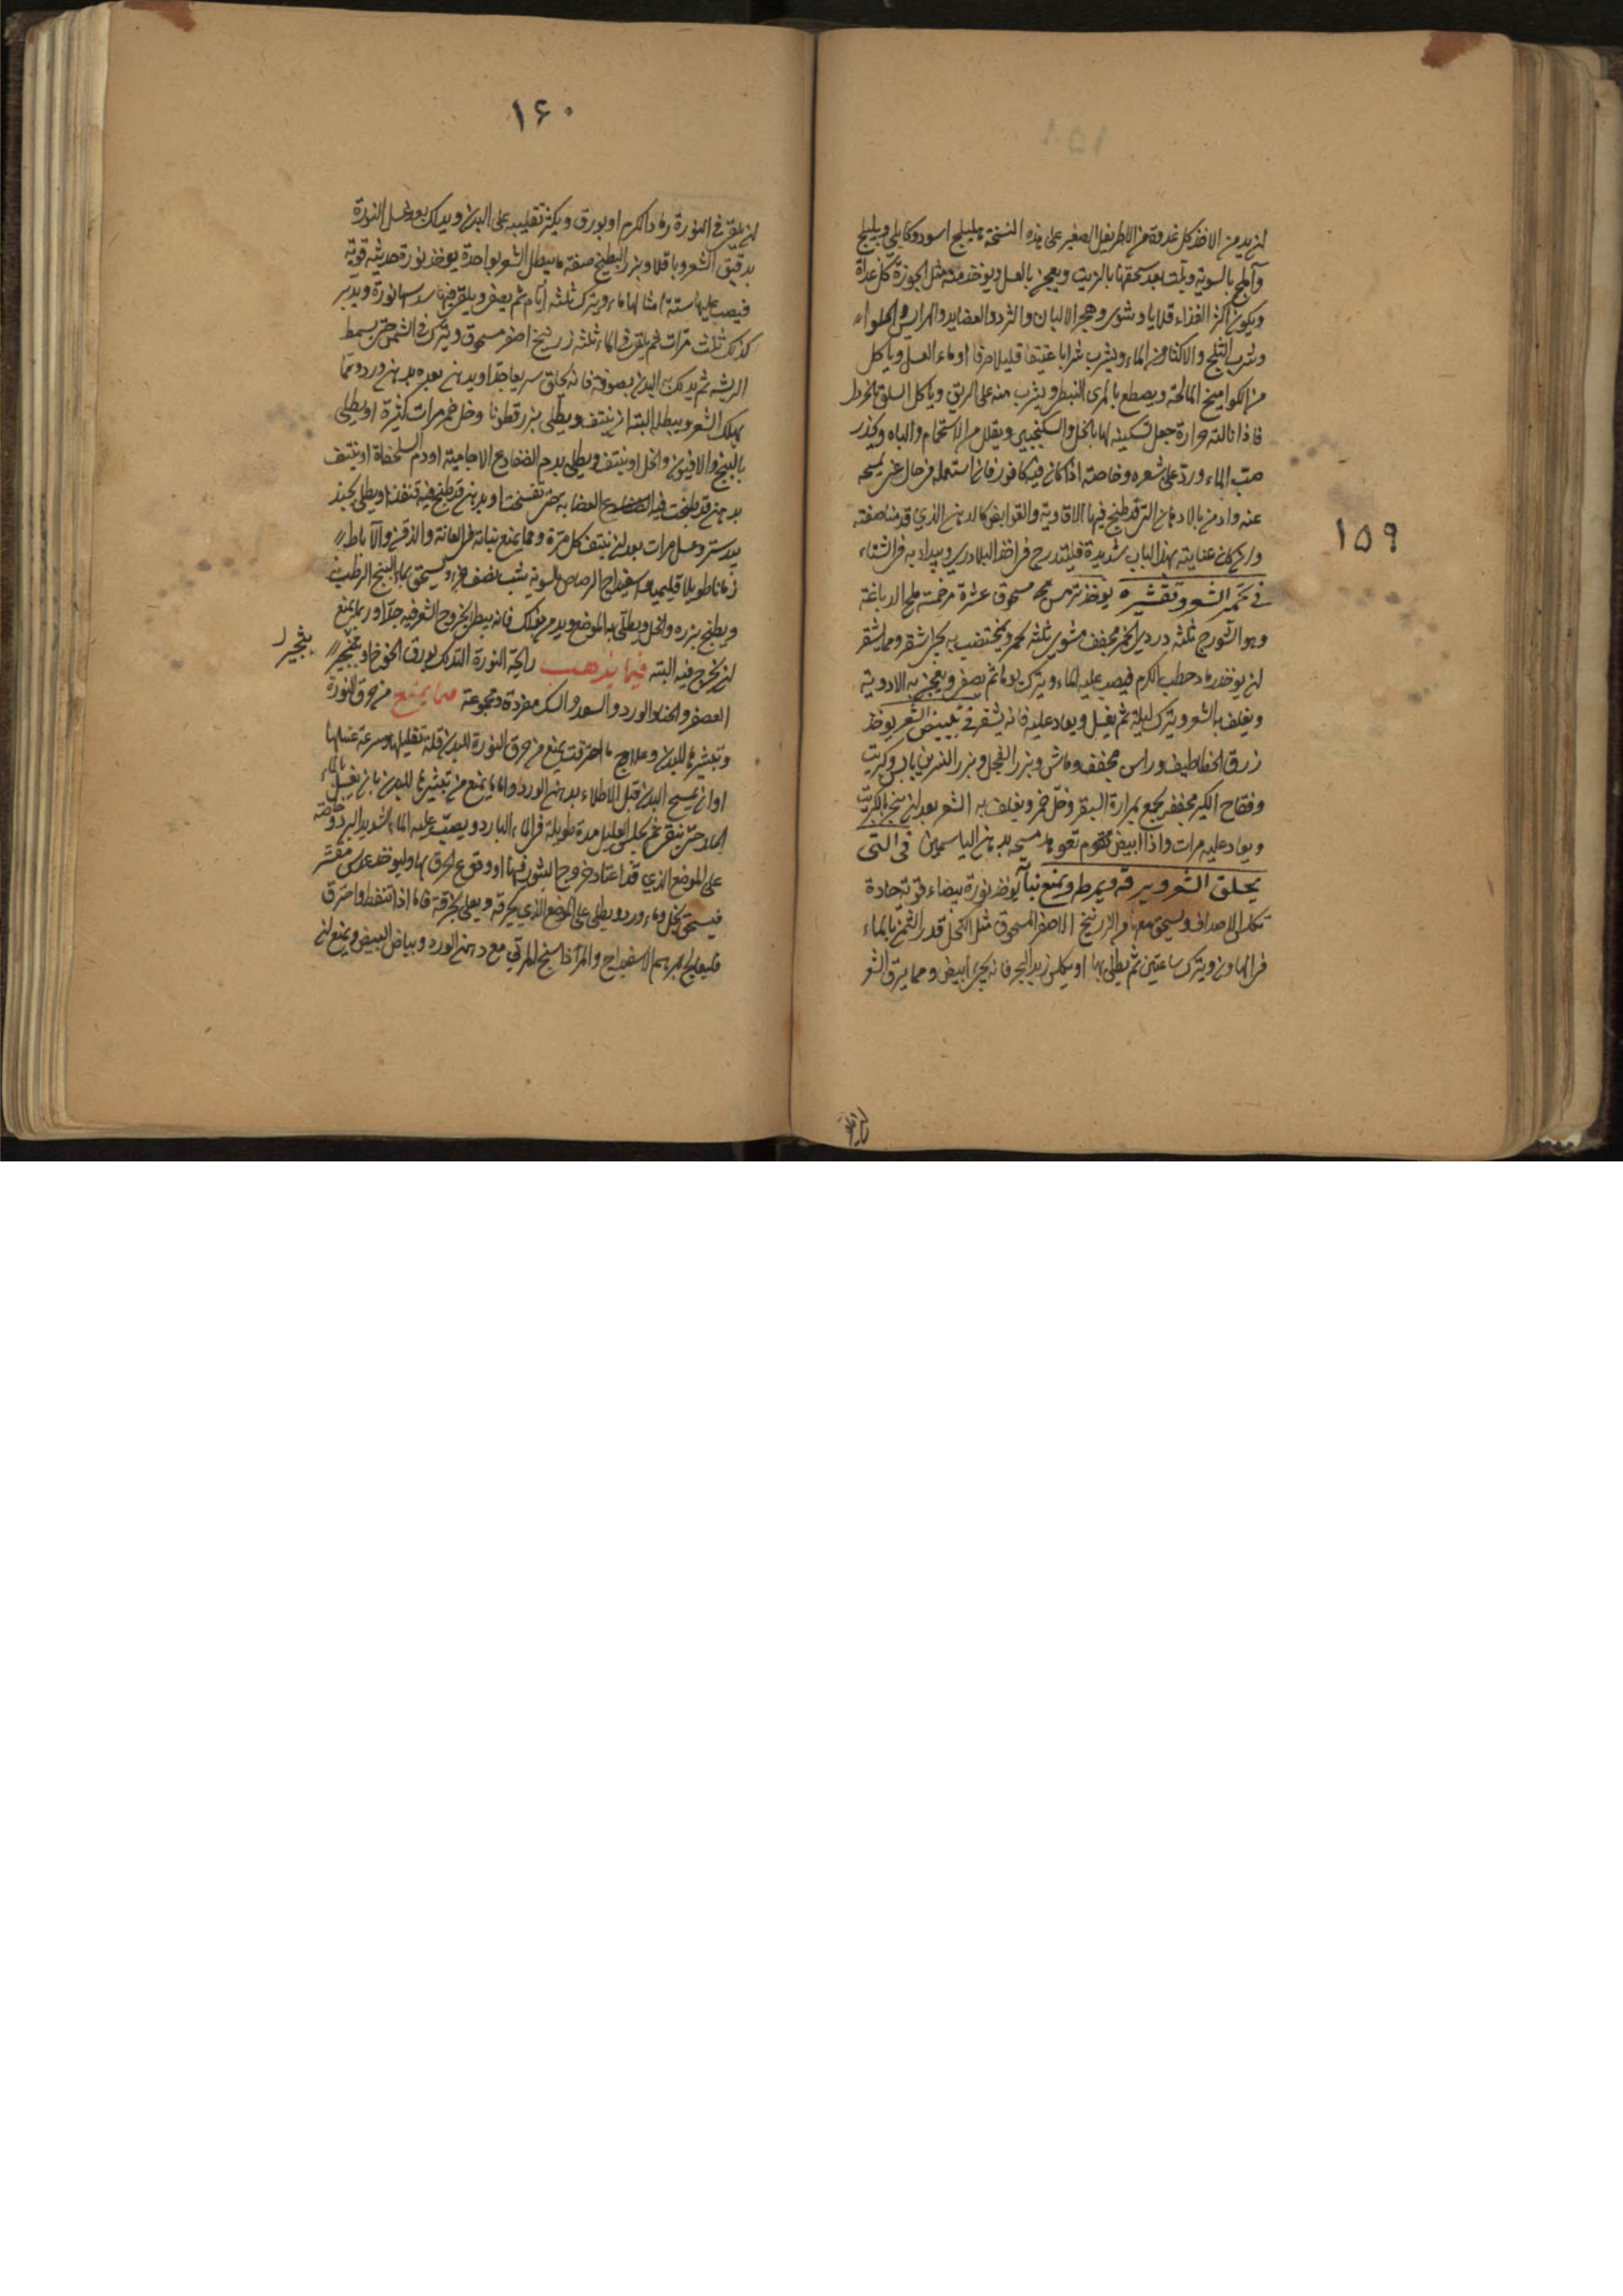 ١٥٩
لن يدمن الاخذ كل غدوة من الاطريفل الصغير على هذه النسخة هليلج اسود وكابلي وبليلج
وآملج بالسوية ويلت بعد سحقها بالزيت ويعجن بالعسل ويؤخذ منه مثل الجوزة كل غداة
ويكون اكثر الغذاء قلايا وشوى وهجر الالبان والثرد والعصايد والهرايس والحلواء
وشرب الثلج والاكثار من الماء ويشرب شرابا عتيقا قليلا صرفا او ماء العسل وياكل
من الكواميخ المالحة ويصطبغ بالمري النبطي ويشرب منه على الريق وياكل السلق بالخردل
فاذا نالته حرارة جعل تسكينه لها بالخل والسكنجبين ويقلل من الاستحمام والباه ويحذر
صب الماء ورد على شعره وخاصة اذا كان فيه كافور فان استعمله في حال عرق يمسحه
عنه وادمن بالادهان التي قد طبخ فيها الافاوية والقوابض كالدهن الذي قدمنا صفته
وان كان عنايته بهذا الباب شديدة فليتدرج في اخذ البلادري ويبدا به في الشتاء
في تحمير الشعر وتشقيره يؤخذ ترمس مسحوق عشرة مر خمسة ملح الدباغة
وهو الشورج ثلثه دردي الخمر مجفف مشوى ثلثه يحمر ويختضب به يجئ اشقر ومما يشقر
ان يوخذ رماد حطب الكرم فيصب عليه الماء ويترك يوما ثم يصفى ويعجن به الادوية
ويغلف به الشعر ويترك ليلة ثم يغسل ويعاد عليه فانه يشقر في تبييض الشعر يوخذ
زرق الخطاطيف وراس مجفف وماش وبزر الفجل وبزر النسرين يابس وكبريت
وفقاح الكبر مجفف يجمع بمرارة البقر وخل خمر ويغلف به الشعر بعد ان يبخر بالكبريت
ويعاد عليه مرات واذا ابيض مسحه بدهن الياسمين في التي
يحلق الشعر ويرقه ويمرطه ويمنع نباته يوخذ نورة بيضاء قوية حادة
تكلس الاصداف ويسحق معها من الزرنيخ الاصفر المسحوق مثل الكحل قدر الثمن بالماء
في الهاون ويترك ساعتين ثم يطلى بها او يكلس زبد البحر فانه يجئ ابيض ومما يرق الشعر
١۶٠
لن يلقى في النورة رماد الكرم او بورق ويكثر تقليبه على البدن ويدلك بعد غسل النورة
بدقيق الشعير وباقلا وبزر البطيخ صفة ما يبطل الشعر بواحدة يوخذ نورة حديثه قوية
فيصب عليها ستة امثالها ماء ويترك ثلثه ايام ثم يصفى ويلقى فيها سدسها نورة ويدبر
كذلك ثلث مرات ثم يلقى في الماء ثلثه زرنيخ اصفر مسحوق ويترك في الشمس حتى يسمط
الريشه ثم يدلك به البدن بصوفة فانه يحلق سريعا جدا ويدهن بعده بدهن ورد ومما
يهلك الشعر ويبطله البتة ان ينتف ويطلى ببزر قطونا وخل خمر مرات كثيرة او يطلى
بالبنج والافيون والخل او ينتف ويطلى بدم الضفادع الاجامية او دم السلحفاة او ينتف
بدهن قد طبخت فيه العضاية حتى تفسخت او بدهن قد طبخ فيه قنفذ او يطلى بجند
بيدستر وعسل مرات بعد ان ينتف كل مرة ومما يمنع نباته في العانة والذقن والآباط
زمانا طويلا قليميا واسفيداج الرصاص بالسوية شب نصف جزء ويسحق بماء البنج الرطب
ويطبخ بزره والخل ويطلى به الموضع ويدمن ذلك فانه يبطئ بخروج الشعر فيه جدا وربما يمنع
لن يخرج فيه البتة فيما يذهب رايحة النورة التدلك بورق الخوخ او بثجير
بثجير
العصفر والحناء والورد والسعد والسك مفردة ومجموعة مما يمنع من حرق النورة
وتبثيرها للبدن وعلاج ما احترقت يمنع من حرق النورة للبدن قلة تقليبها وسرعة غسلها
او ان يمسح البدن قبل الاطلاء بدهن الورد واما ما يمنع من تبثيرها للبدن بان يغسل بالماء
الحار حتى ينقى ثم يجلس العليل مدة طويلة في الماء البارد ويصب عليه الماء الشديد البرد وخاصة
على الموضع الذي قد اعتاد خروج البثور فيها او وقوع الحرق بها وليوخذ عدس مقشر
فيسحق بخل وماء ورد ويطلى على الموضع الذي يحرقه ويعلى بخرقة فاما اذا تنفط واحترق
فليعالج بمرهم الاسفيداج والمرداسنج المربى مع دهن الورد وبياض البيض ويمنع لن